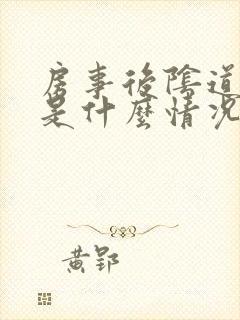 房事後陰道
是什麼情況
黃郢